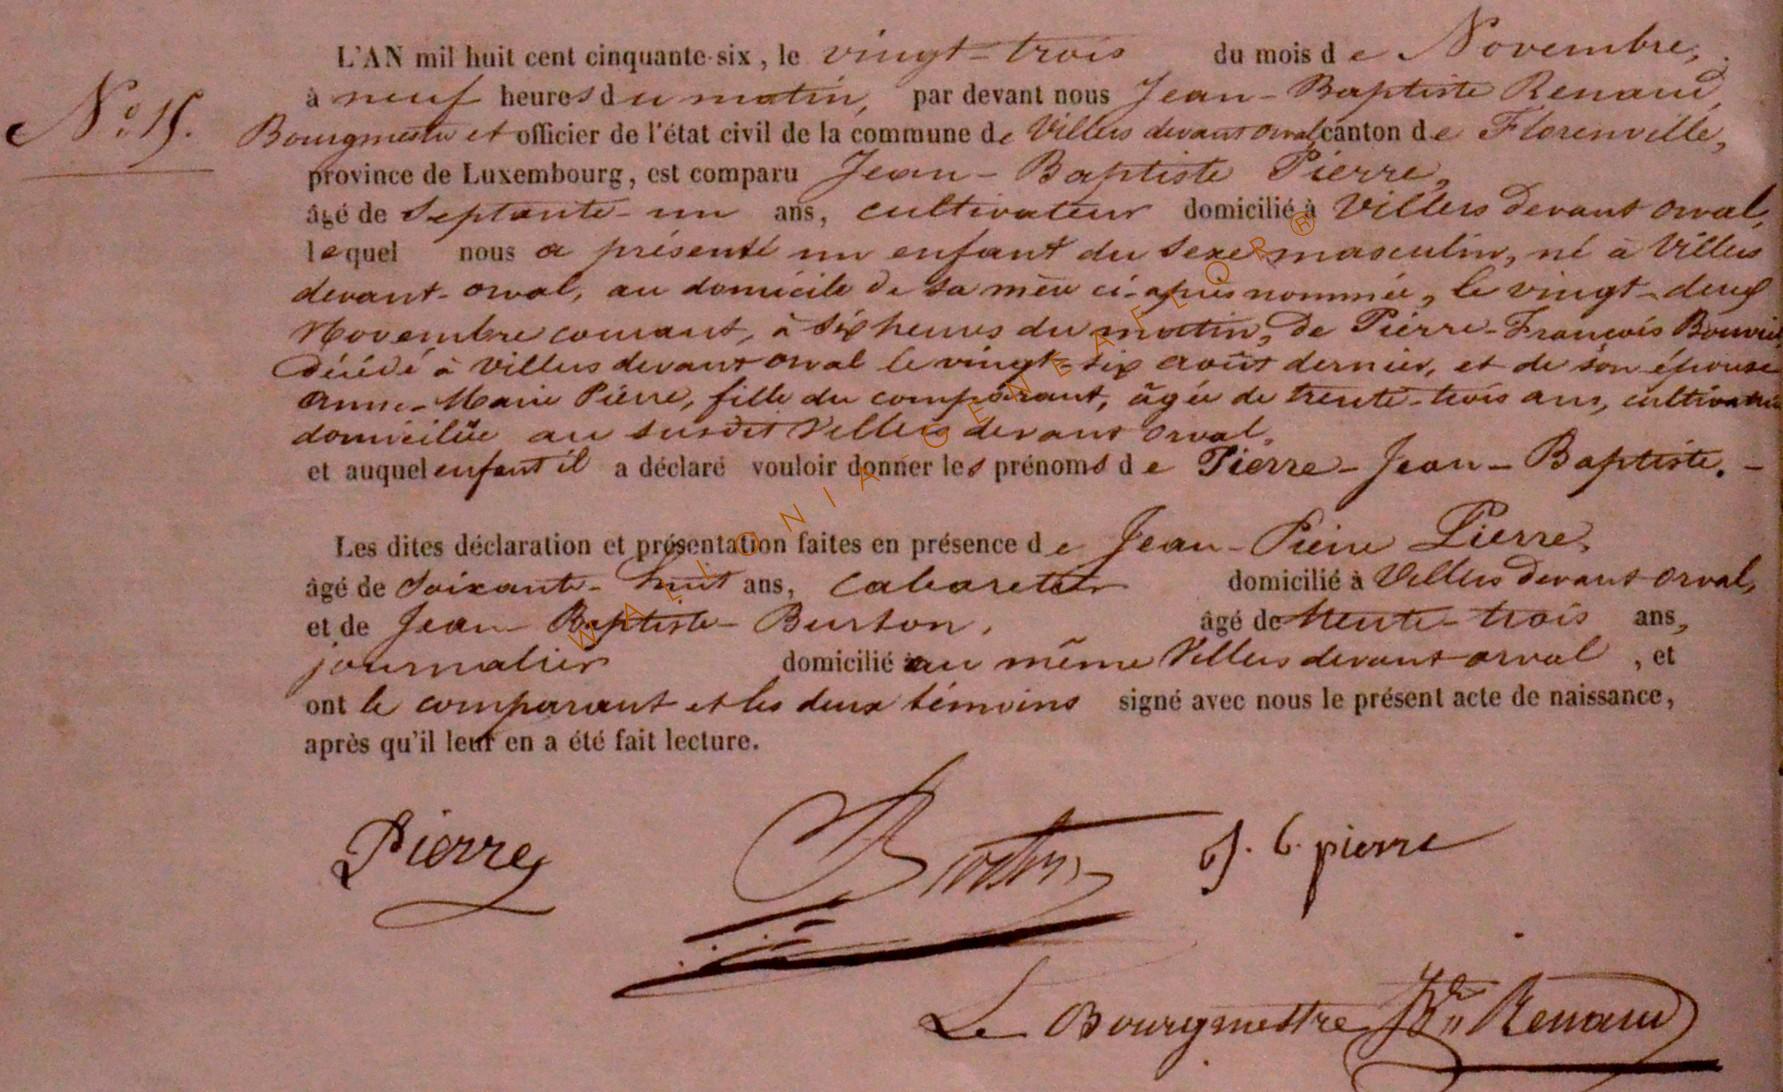 L'AN mil huit cent cinquante-six, le vingt-trois du mois de Novembre,
à neuf heures du matin, par devant nous Jean-Baptiste Renaud,
Nº 15.
Bourgmestre et officier de l'état civil de la commune de Villers devant orval, canton de Florenville,
province de Luxembourg, est comparu Jean-Baptiste Pierre,
âgé de Septante-un ans, cultivateur domicilié à Villers devant orval,
lequel nous a présenté un enfant du sexe masculin, né à Villers
devant-orval, au domicile de sa mère ci-après nommée, le vingt-deux
Novembre courant, à six heures du matin, de Pierre-François
Décédé à Villers devant orval le vingt-six août dernier, et de son épouse
Anne-Marie Pierre, fille du comparant, âgée de trente-trois ans, cultivatrice
domiciliée au susdit Villers devant orval.
et auquel enfant il a déclaré vouloir donner les prénoms de Pierre-Jean-Baptiste.-
Les dites déclaration et présentation faites en présence de Jean-Pierre Pierre,
âgé de Soixante-huit ans, Cabaretier domicilié à Villers devant orval,
et de Jean Baptiste Burton, âgé de trente-trois ans,
journalier domicilié au même Villers devant orval, et
ont le comparant et les deux témoins signé avec nous le présent acte de naissance,
après qu'il leur en a été fait lecture.
WALLONIA GENEAFLOR ®
Pierre
Burton
J. b. pierre
Le Bourgmestre, Renaud